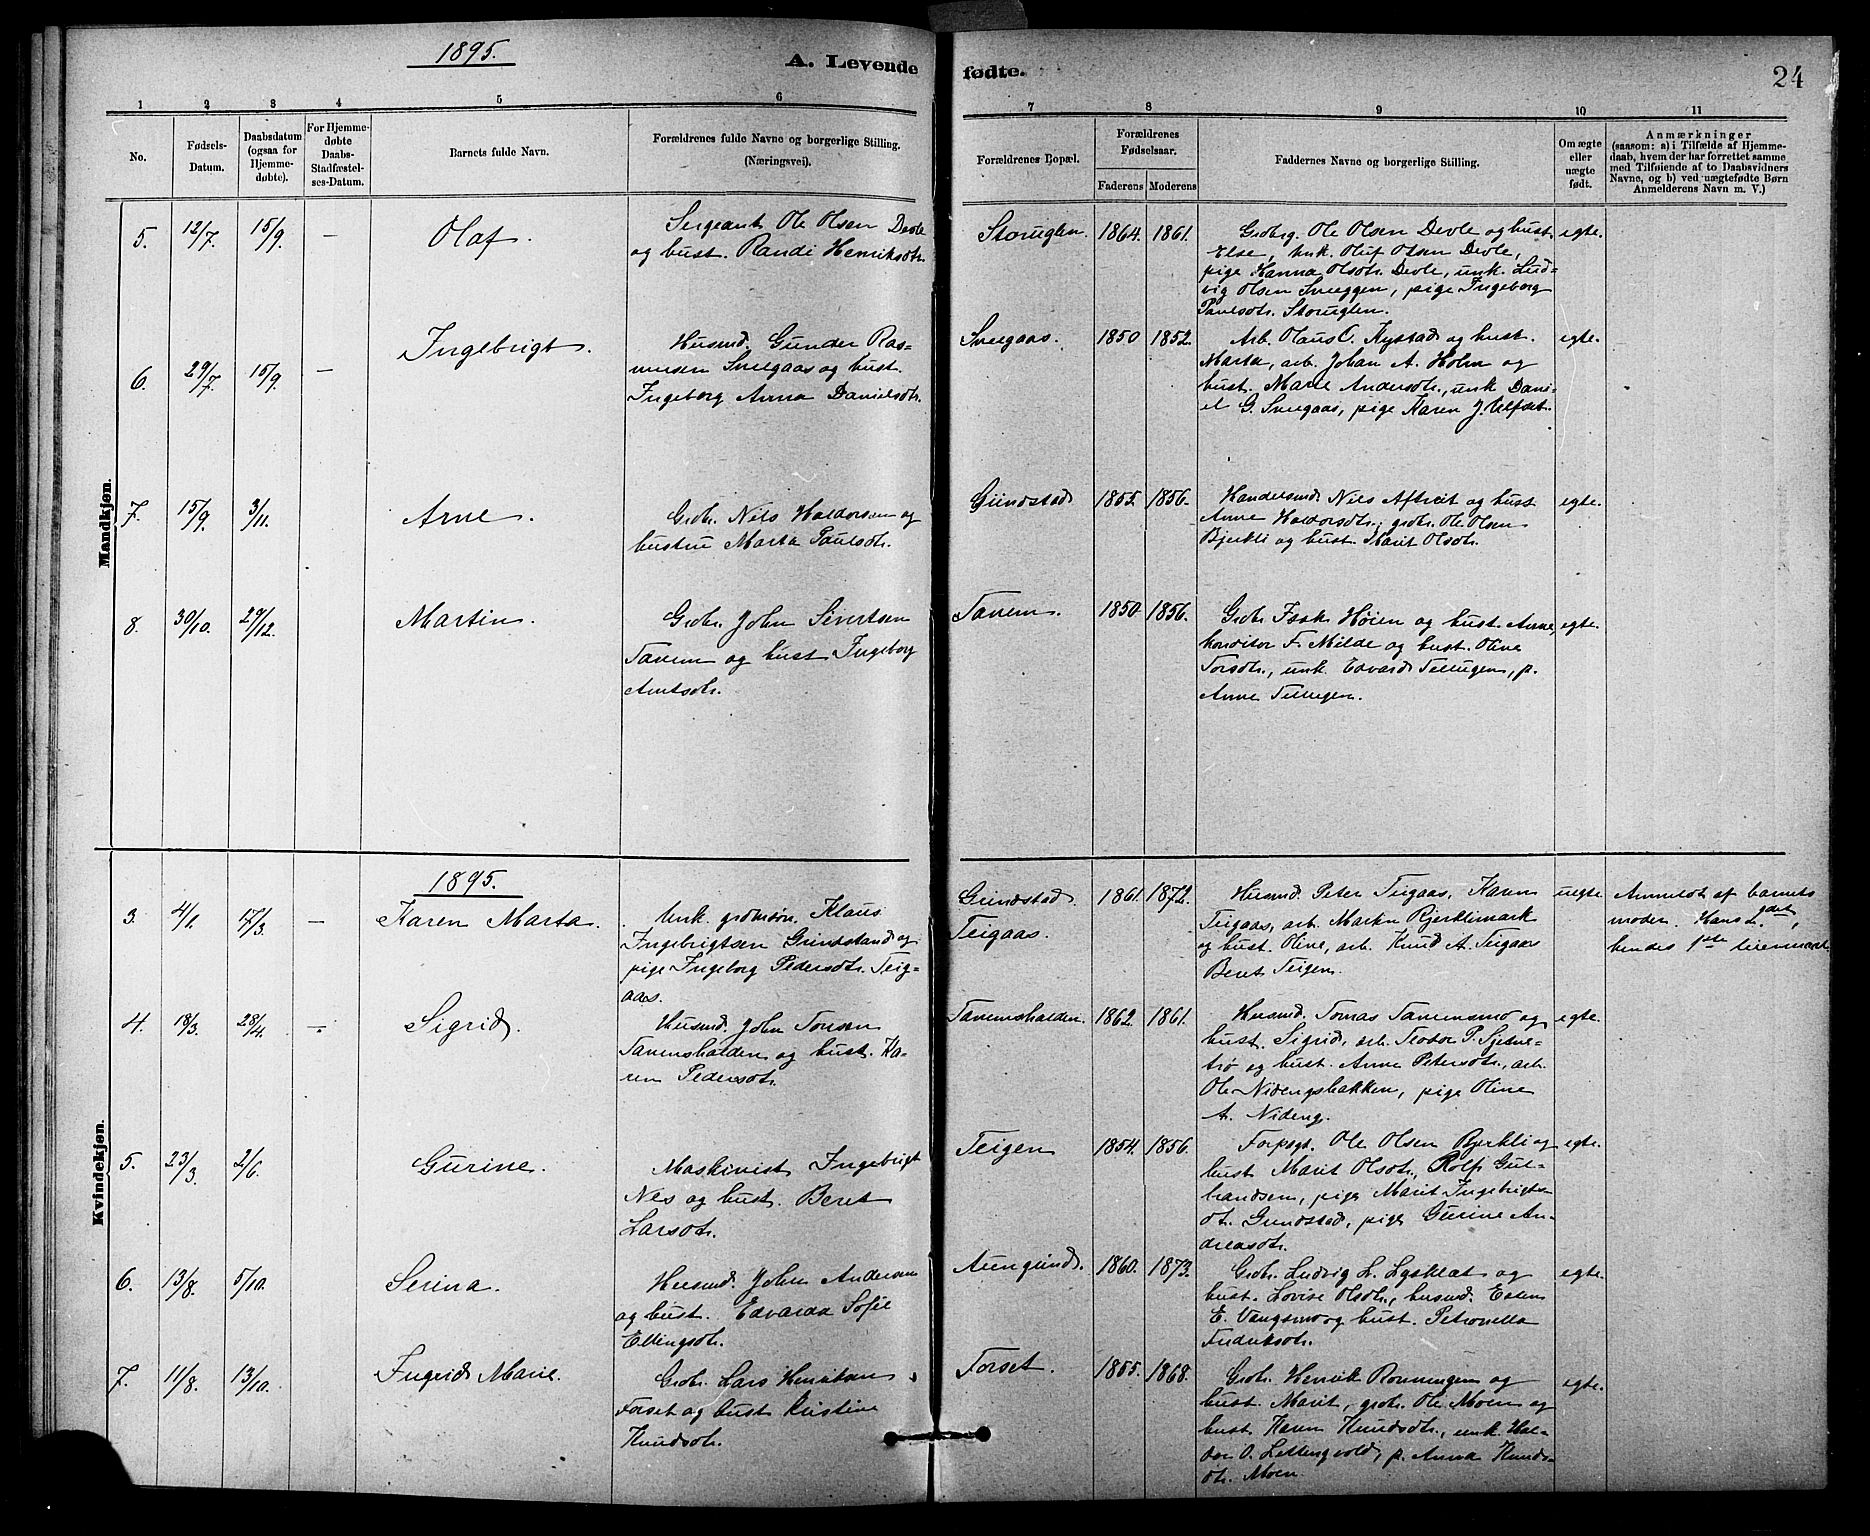 1895.
A. Levende
fødte.
24
1 2 3 4 5 6 7 8 9 10 11
No.
Fødsels-
Datum.
Daabsdatum
(ogsaa for
Hjemme-
døbte).
For Hjemme-
døbte
Daabs-
Stadfæstel-
ses-Datum.
Barnets fulde Navn.
Forældrenes fulde Navne og borgerlige Stilling.
(Næringsvei).
Forældrenes Bopæl.
Forældrenes
Fødselsaar.
Faderens Moderens
Faddernes Navne og borgerlige Stilling.
Om ægte
eller
uægte
født.
Anmærkninger
(saasom: a) i Tilfælde af Hjemme-
daab, hvem der har forrettet samme
med Tilføiende af to Daabsvidners
Navne, og b) ved uægtefødte Børn
Anmelderens Navn m. V.)
Mandkjøn.
5. 12/7. 15/9. — Olaf.
Sergeant Ole Olsen Devle
og hust. Randi Henriksdtr.
Storuglen. 1864. 1861.
Grdbrg. Ole Olsen Devle og hust.
Else, unk. Oluf Olsen Devle,
pige Hanna Olsdtr. Devle, unk. Lud-
vig Olsen Sneeggen, pige Ingeborg
Paulsdtr. Storuglen.
egte.
6. 29/7. 15/9. — Ingebrigt.
Husmd. Gunder Ras-
mussen Sneegaas og hust.
Ingeborg Anna Danielsdtr.
Sneegaas. 1850 1852.
Arb. Olaus O. Rystad og hust.
Marta, arb. Johan A. Holm og
hust. Marie Andersdtr., unk. Dani-
el G. Sneegaas, pige Karen J. Ulfset.
egte.
7. 15/9. 3/11. Arne.
Grdbr. Nils Haldorsen og
hustru Marta Paulsdtr.
Grindstad 1855. 1856.
Handelsmd. Nils Aftret og hust
Anne Haldorsdtr., grdbr. Ole Olsen
Bjerkli og hust. Marit Olsdtr.
egte.
8. 30/10. 29/12. Martin.
Grdbr. John Sivertsen
Tanem og hust Ingeborg
Arntsdtr.
Tanem. 1850. 1856.
Grdbr Isak Høien og hust Anne,
konditor F. Milde og hust. Oline
Torsdtr., unk. Edvard Tellugen, p.
Anne Tellugen.
egte.
Kvindekjøn.
1895.
3. 4/1. 17/3. — Karen Marta.
Unk. grdmsøn. Klaus
Ingebrigtsen Grindstand og
pige Ingeborg Pedersdtr. Teig-
aas.
Grindstad
Teigaas.
1861. 1872.
Husmd. Peter Teigaas, Karen
Teigaas, arb. Martin Bjerklimark
og hust. Oline, arb. Knud A. Teigaas
Beret Teigen.
uegte
Anmeldt af barnets
moder. Hans 2det,
hendes 1ste leiermaal.
4. 18/3. 28/4. — Sigrid.
Husmd. John Tonsen
Tanemshalden og hust. Ka-
ren Pedersdtr.
Tanemshalden. 1862. 1861.
Husmd. Tomas Tanemsmo og
hust. Sigrid, arb. Teodor P. Sjetne-
trø og hust. Anne Petersdtr., arb.
Ole Nidengsbakken, pige Oline
A. Nideng.
egte.
5. 23/3. 2/6. Gurine.
Maskinist Ingebrigt
Nes og hust. Beret
Larsdtr.
Teigen 1854. 1856.
Forpagt. Ole Olsen Bjerkli og
hust Marit Olsdtr., Rolf Gul-
brandsen, pige Marit Ingebrigts-
dt. Grindstad, pige Gurine An-
dreasdtr.
egte.
6. 13/8. 5/10. Serina.
Husmd. John Andersen
og hust. Edvarda Sofie
Ellingsdtr.
Aungrind. 1860. 1873.
Grdbr. Ludvig L. Lysklæt og
hust. Lovise Olsdtr., husmd. Esten
E. Vangsmo og hust. Petronella
Fredriksdtr.
egte.
7. 11/8. 13/10. Ingrid Marie.
Grdbr. Lars Henriksen
Forset og hust Kristine
Knudsdtr.
Forset. 1855. 1868.
Grdbr. Henrik Rønningen og
hust. Marit, grdbr. Ole Moen og
hust. Karen Knudsdtr., unk. Hal-
dor O. Lettingvold, p. Anna Knuds-
dtr. Moen.
egte.